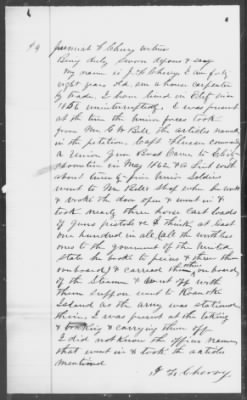 #4 Jeremiah F Cherry witness
Being duly sworn deposes & says
My name is J. F. Cherry. I am forty
eight years old. am a house carpenter
by trade. I have lived in Eliz City since
1856 uninterruptedly. I was present
at the time the Union forces took
from Mr C. W. Bell the articles named
in the petition. Capt
a Union Gun Boat Came to Eliz City
in May 1862 & a Lieut with
about twenty-five Union Soldiers
went to Mr Bells Shop when he was
& broke the door open & went in &
took nearly three horse cart loads
of guns pistols &c I think at least
one hundred in all (all the worthless
ones to the government of the United
State he broke to pieces & threw them
overboard) & carried the others on board
of the Steamer & went off with
them suppose went to Roanoke
Island as the army was stationed
there. I was present at the taking
& breaking & carrying them off
I did not know the officers names
that went in & took the articles
mentioned
J F Cherry